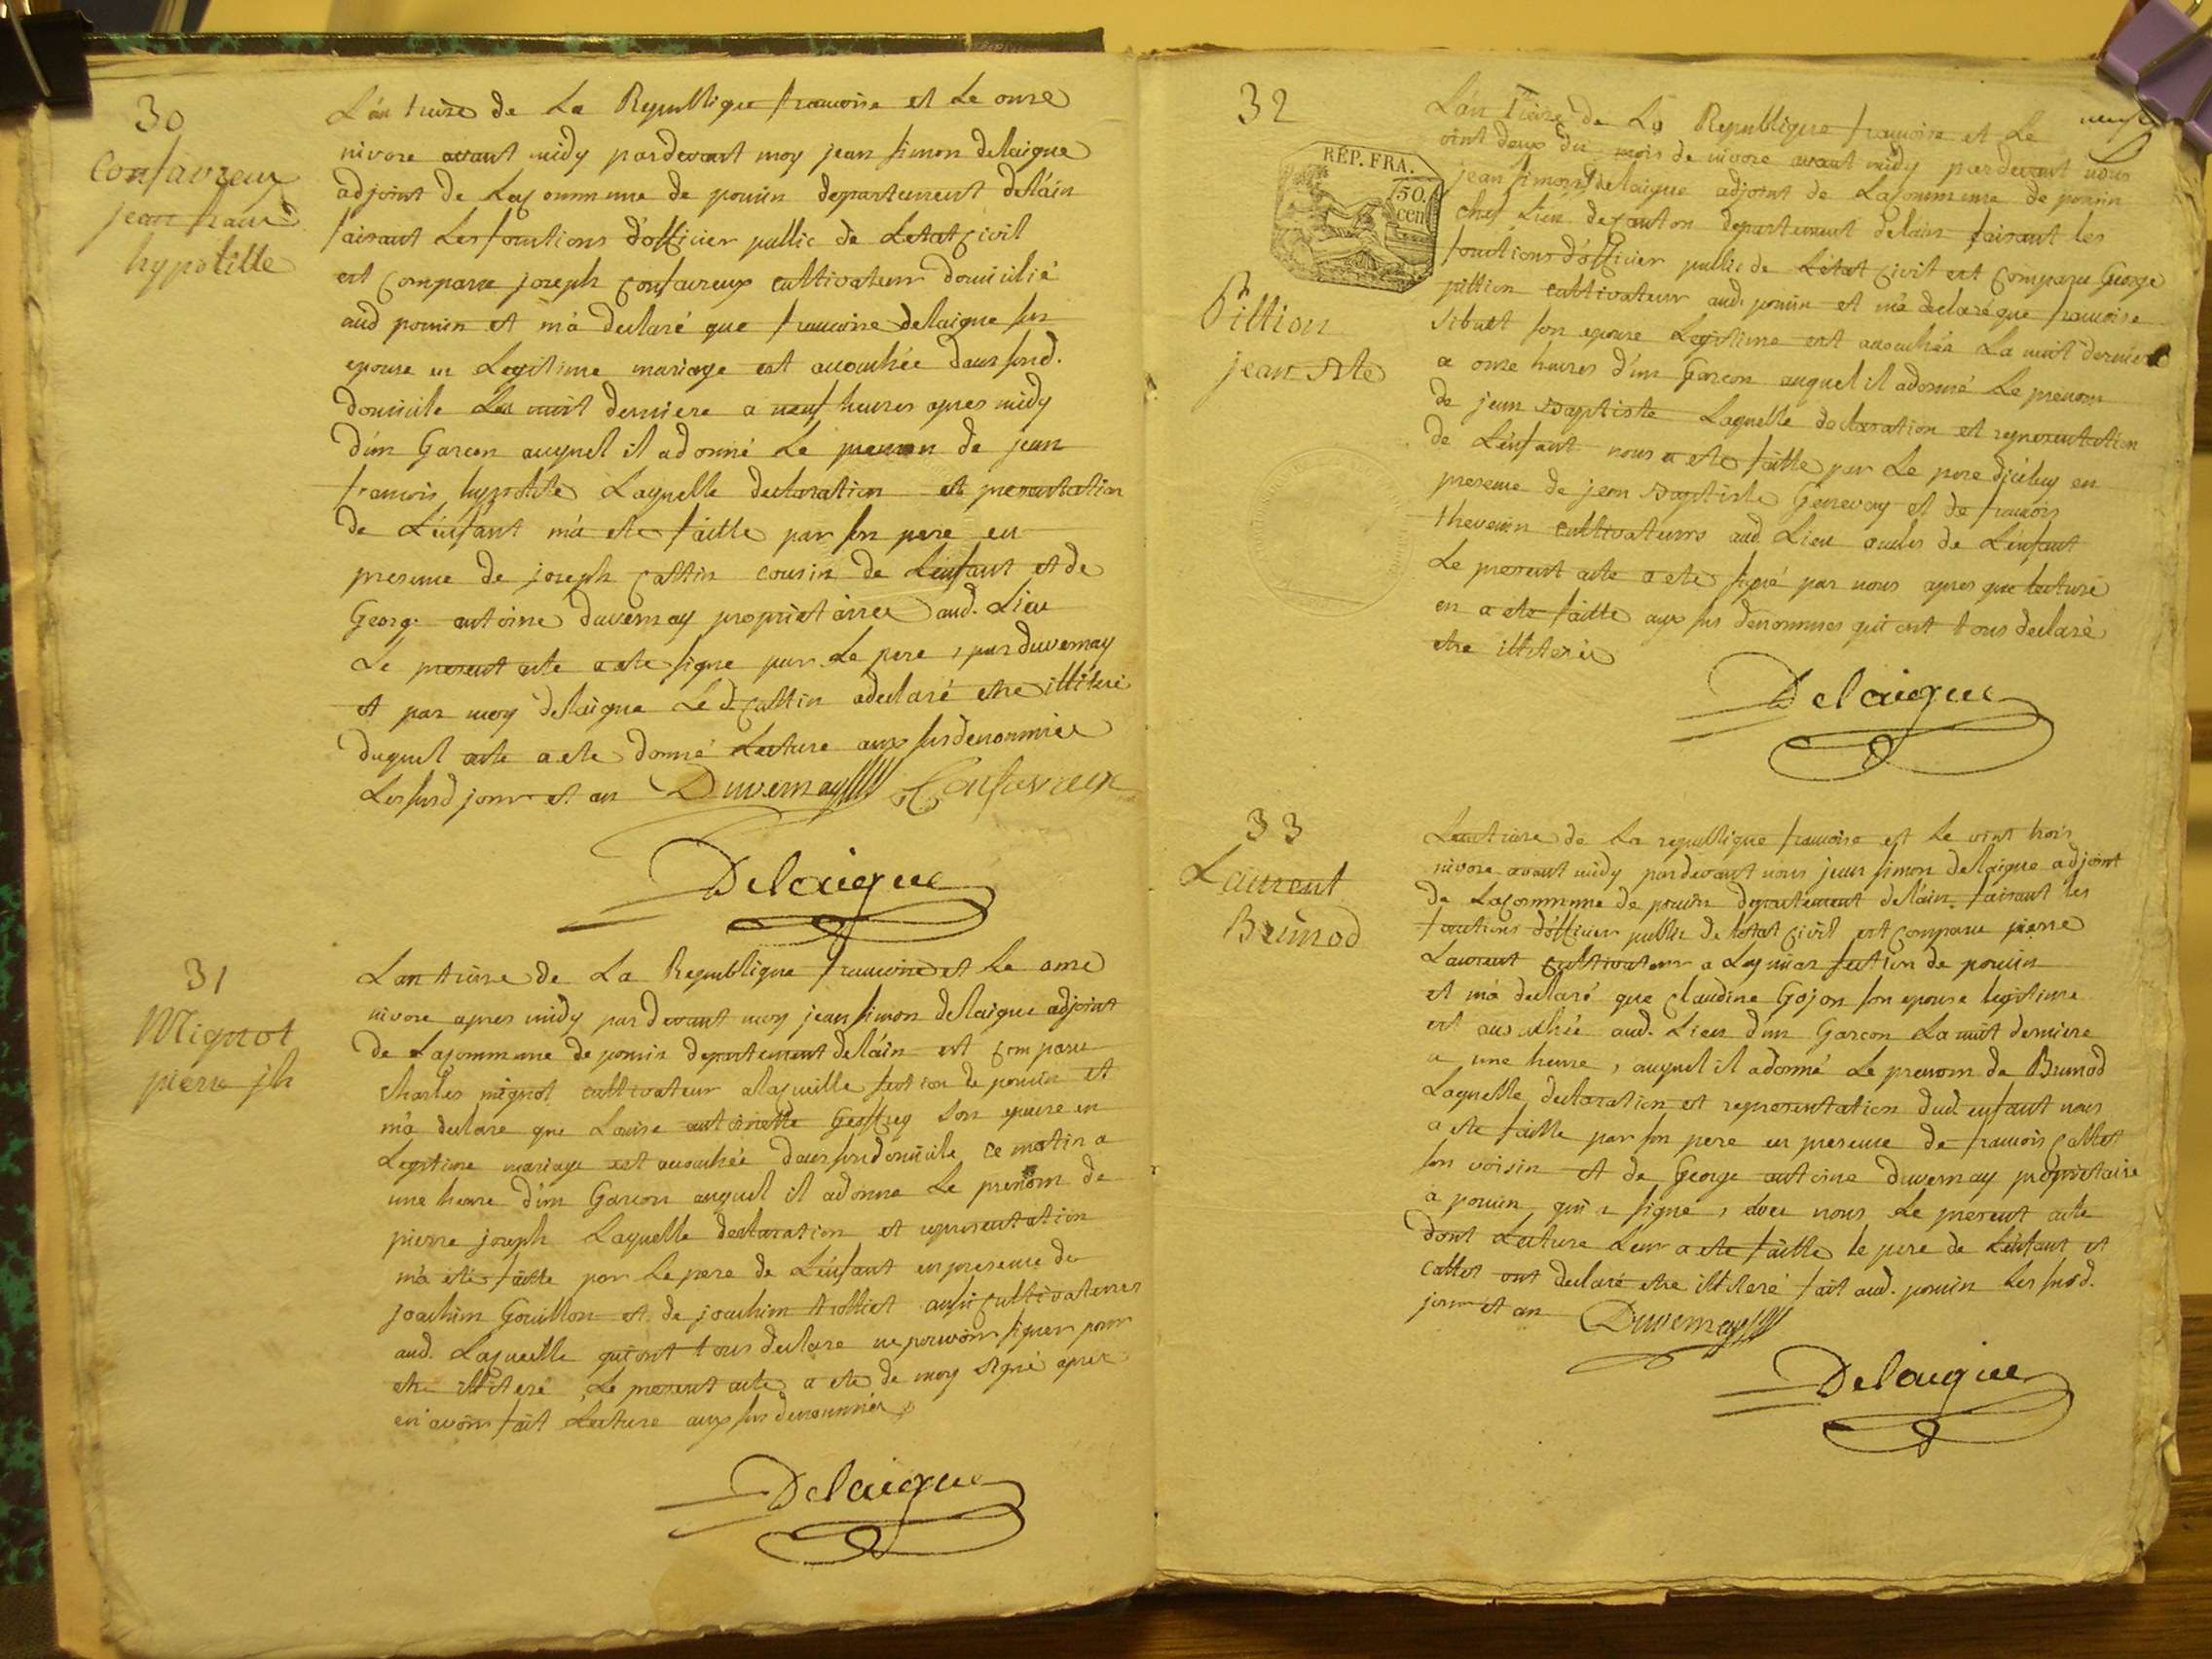 30
Confavreux
jean franc
hypolitte
L'an treize de La Republique francoise et Le onze
nivose avant midy pardevant moy jean simon delaigue
adjoint de La commune de poncin departement delain
faisant Les fonctions d'officier public de Letat civil
est comparu joseph confavreux cultivateur domicilié
aud poncin et m'a declaré que francoise delaigue son
epouse en Legitime mariage est accouchée dans sond.
domicile La nuit derniere a neuf heures apres midy
d'un Garcon auquel il a donné Le prenom de jean
francois hypolite Laquelle declaration et presentation
de L'enfant m'a ete faitte par son pere en
presence de joseph cattin cousin de L'enfant et de
George antoine duvernay proprietaire aud. Lieu
Le present acte a ete signe par Le pere, par duvernay
et par moy delaigue Le d cattin a declaré etre illiteré
duquel acte a ete donné Lecture aux susdenommés
Les susd jour et an Duvernay Confavreux
Delaigue
31
Mignot
pierre jh
L'an treize de La Republique francoise et Le onze
nivose apres midy pardevant moy jean simon delaigue adjoint
de La commune de poncin departement delain est comparu
charles mignot cultivateur a la cueille section de poncin et
m'a declare que Louise antoinette Geoffrey son epouse en
Legitime mariage est accouchée dans son domicile ce matin a
une heure d'un Garcon auquel il a donne Le prenom de
pierre joseph Laquelle declaration et representation
m'a eté faitte par Le pere de L'enfant en presence de
joachim Gouillon et de joachim trolliet aussi cultivateurs
aud. La cueille qui ont tous declare ne pouvoir signer pour
etre illiteré, Le present acte a ete de moy signé apres
en avoir fait Lecture aux sus denommés
Delaigue
32
RÉP. FRA.
50.
cen
Pittion
jean Bte
L'an treize de La Republique francoise et Le
vint deux du mois de nivose avant midy pardevant nous
jean simon delaigue adjoint de La commune de poncin
chef Lieu de canton departement delain faisant les
fonctions d'officier public de L'etat civil est comparu George
pittion cultivateur aud. poncin et m'a declaré que francoise
sibuet son epouse Legitime est accouchée La nuit derniere
a onze heures d'un Garcon auquel il a donné Le prenom
de jean Baptiste Laquelle declaration et representation
de L'enfant nous a ete faitte par Le pere d'iceluy en
presence de jean Baptiste Genevay et de francois
thevenin cultivateurs aud. Lieu oncles de L'enfant
Le present acte a ete signé par nous apres que lecture
en a ete faitte aux sus denommés qui ont tous declaré
etre illiterés
Delaigue
33
Laurent
Brunod
L'an treize de La republique francoise et Le vint trois
nivose avant midy pardevant nous jean simon delaigue adjoint
de La commune de poncin departement delain faisant les
fonctions d'officier public de letat civil est comparu pierre
Laurent cultivateur a section de poncin
et m'a declaré que claudine Gojon son epouse legitime
est accouchée aud. Lieu d'un Garcon La nuit derniere
a une heure, auquel il a donné Le prenom de Brunod
Laquelle declaration et representation dud. enfant nous
a ete faitte par son pere en presence de francois callet
son voisin et de George antoine duvernay proprietaire
a poncin qui a signé, avec nous Le present acte
dont Lecture Leur a ete faitte le pere de L'enfant et
callet ont declaré etre illiteré fait aud. poncin Les susd.
jour et an Duvernay
Delaigue